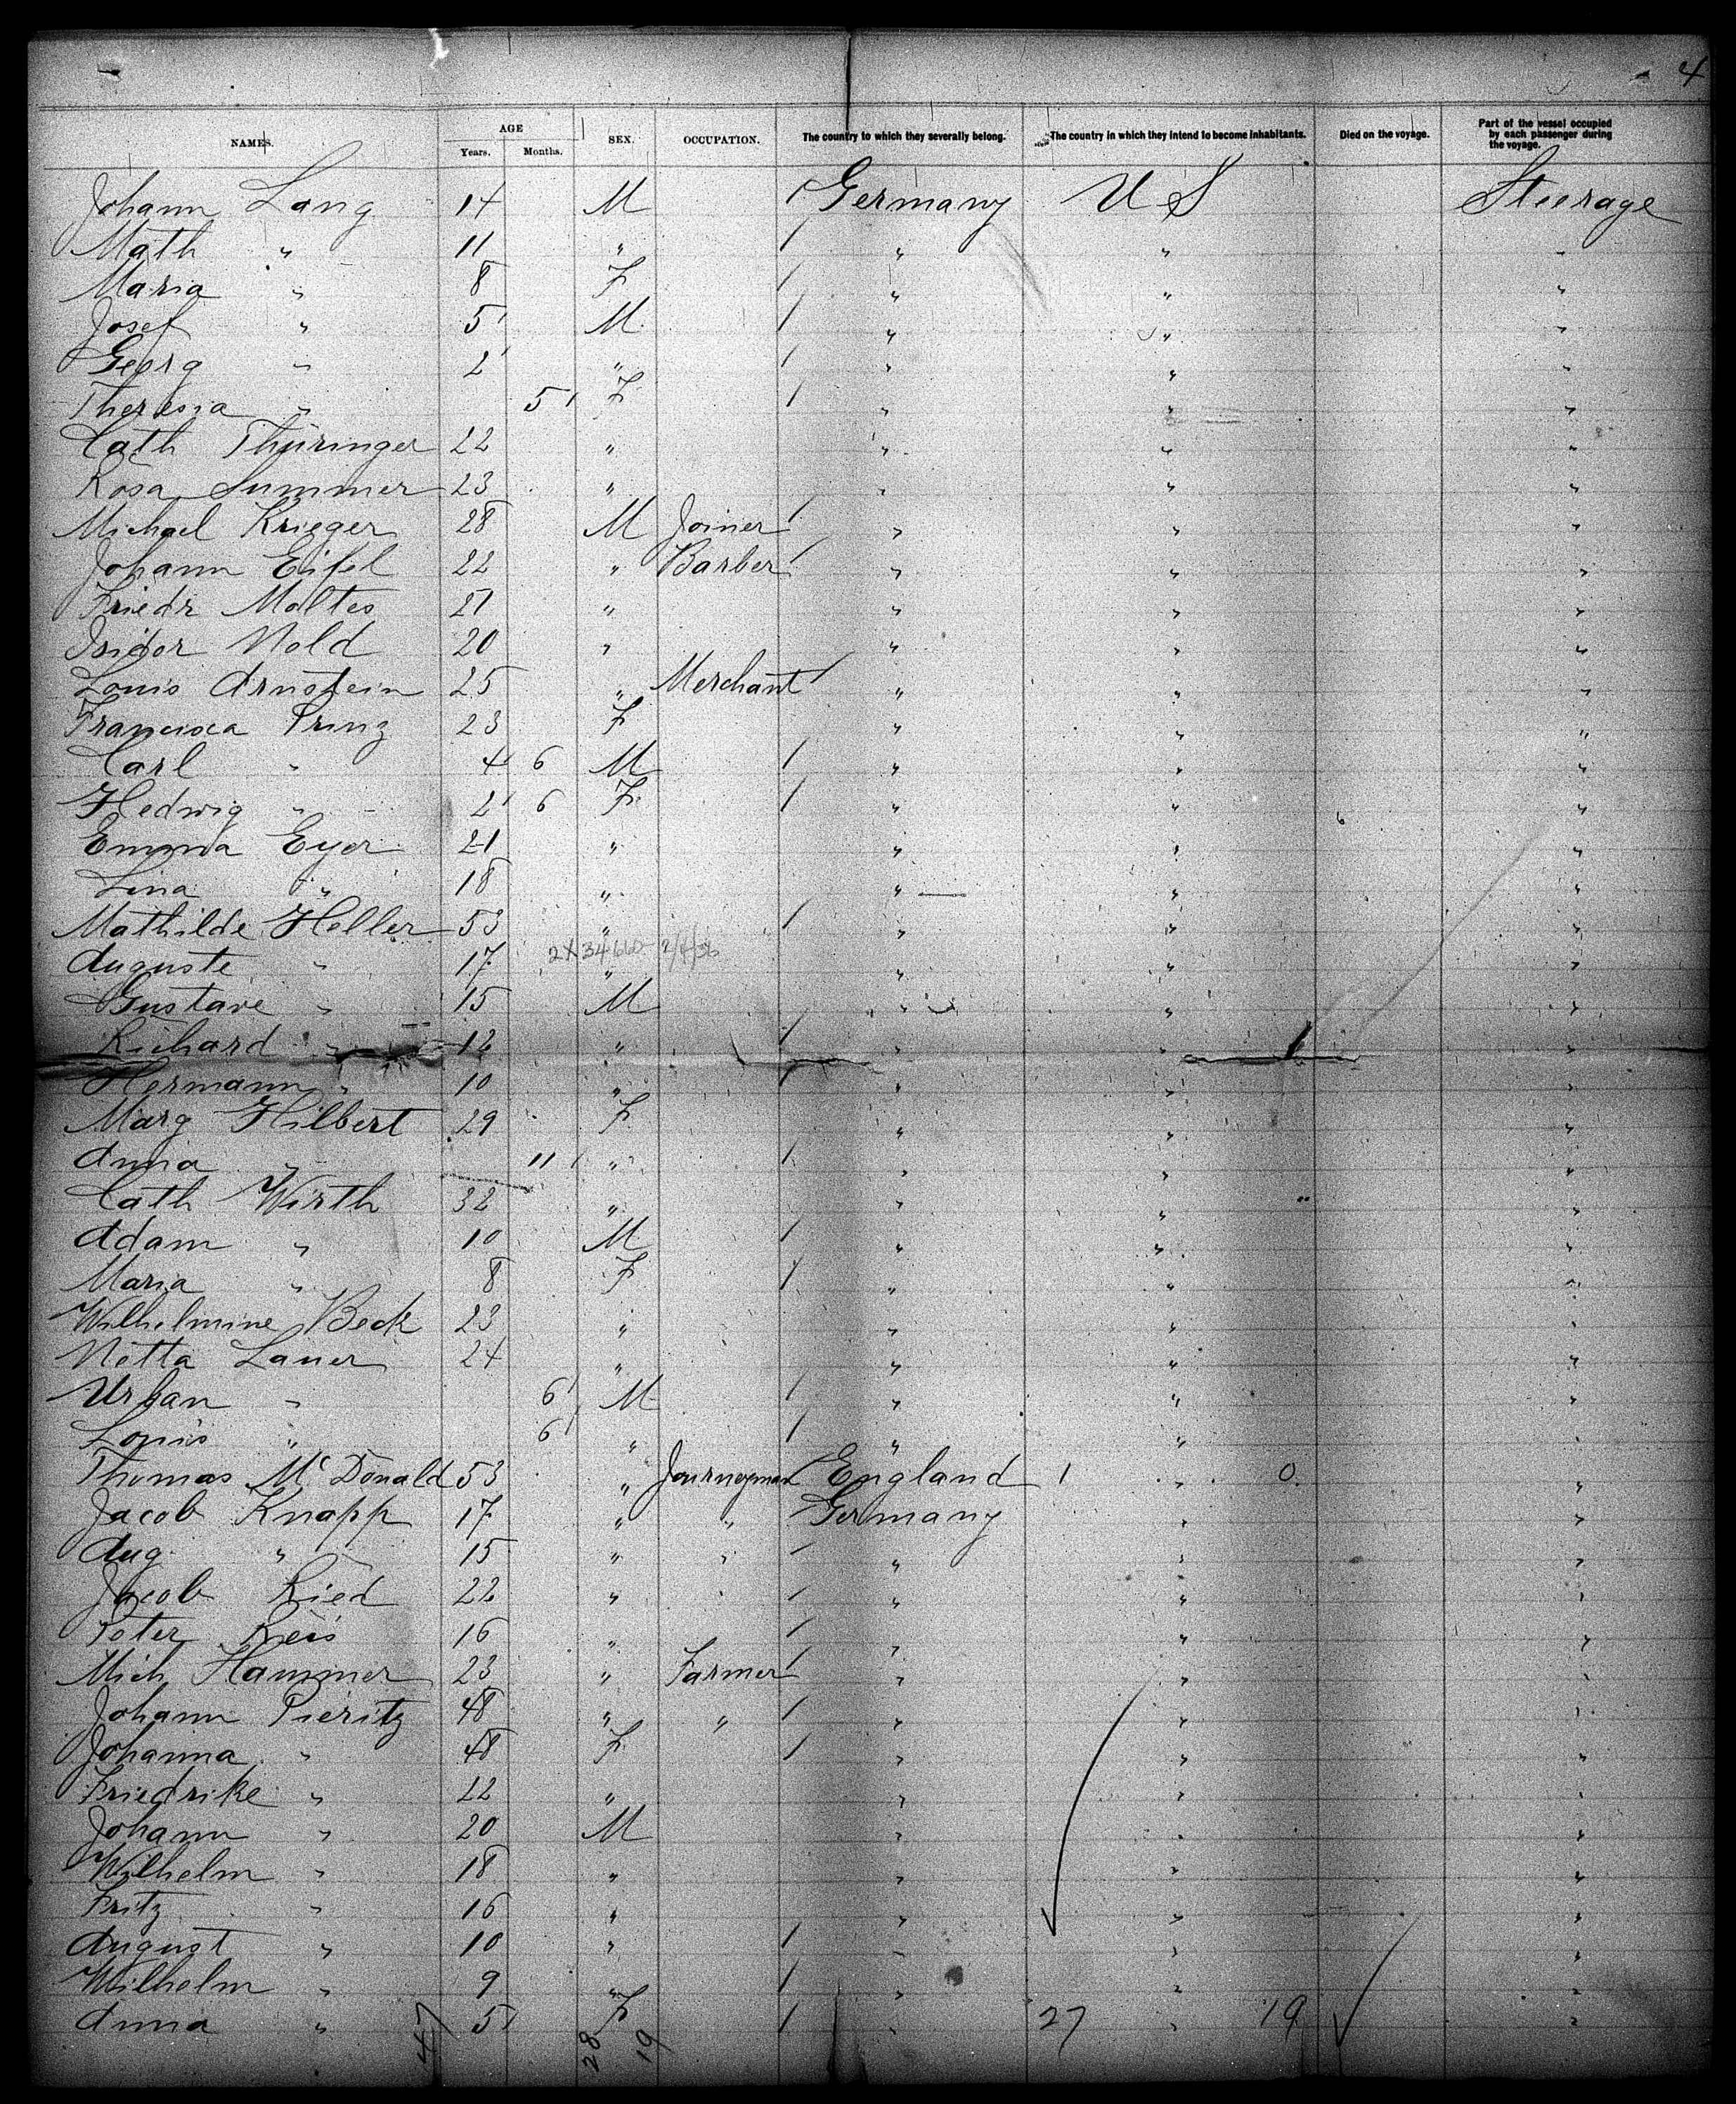 4
NAMES. AGE SEX. OCCUPATION. The country to which they severally belong. The country in which they intend to become inhabitants. Died on the voyage. Part of the vessel occupied by each passenger during the voyage.
Years. Months.
Johann Lang 14 M / Germany U S Steerage
Math " 11 " / " " "
Maria " 8 F / " " "
Josef " 5 M / " " "
Georg " 2 " / " " "
Theresia " 5 F / " " "
Cath Thüringer 22 " " " "
Rosa Summer 23 " " " "
Michael Krieger 28 M Joiner / " " "
Johann Eifel 22 " Barber / " " "
Friedr Moltes 27 " " " "
Isidor Nold 20 " " " "
Louis Arnstein 25 " Merchant / " " "
Francisca Prinz 23 F " " "
Carl " 4 6 M / " " "
Hedwig " 2 6 F / " " "
Emma Eyer 21 " " " "
Lina " 18 " " " "
Mathilde Heller 53 " / " " "
Auguste " 17 " " " "
Gustave " 15 M " " "
Richard " 12 " / " " "
Hermann " 10 " / " " "
Marg Hilbert 29 F " " "
Anna " 11 " / " " "
Cath Wirth 32 " " " "
Adam " 10 M / " " "
Maria " 8 F / " " "
Wilhelmine Beck 23 " " " "
Netta Lauer 24 " " " "
Urban " 6 M / " " "
Louis " 6 " / " " "
Thomas McDonald 53 " Journeyman England 1 " 0 "
Jacob Knapp 17 " " / Germany " "
Aug " 15 " " / " " "
Jacob Ried 22 " " / " " "
Peter Reis 16 " / " " "
Mich Hammer 23 " Farmer / " " "
Johann Pieritz 48 " " / " " "
Johanna " 48 F / " " "
Friedrike " 22 " " " "
Johann " 20 M " " "
Wilhelm " 18 " " " "
Fritz " 16 " " " "
August " 10 " / " " "
Wilhelm " 9 " / " " "
Anna " 5 F / " 27 " 19 "
47 28 19